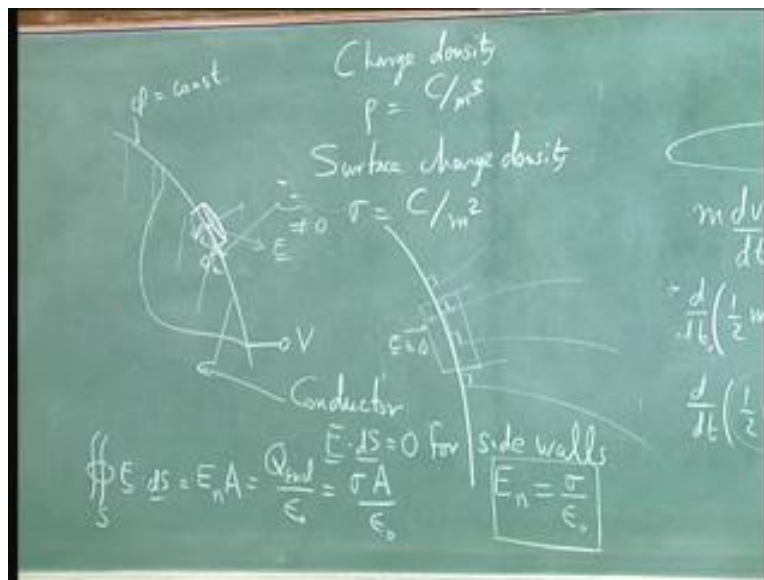 Charge density
φ = const.
ρ = C/m³
Surface charge density
σ = C/m²
≠ 0
E
E = 0
V
Conductor
E · dS = 0 for side walls
∯ E dS = EₙA = Qencl/ε₀ = σA/ε₀
S
Eₙ = σ/ε₀
m dv/dt
d/dt (1/2 m
d/dt (1/2